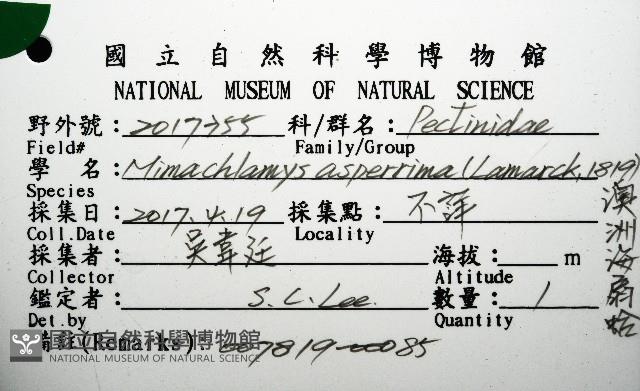 國立自然科學博物館
NATIONAL MUSEUM OF NATURAL SCIENCE
野外號：2017755 科/群名：Pectinidae
Field# Family/Group
學 名：Mimachlamys asperrima (Lamarck, 1819)
Species
採集日：2017.4.19 採集點：不詳
Coll.Date Locality
採集者：吳韋廷 海拔： m
Collector Altitude
鑑定者：S.C.Lee 數量：1
Det.by Quantity
備註(Remarks)： 007819-00085
澳洲海扇蛤
國立自然科學博物館
NATIONAL MUSEUM OF NATURAL SCIENCE